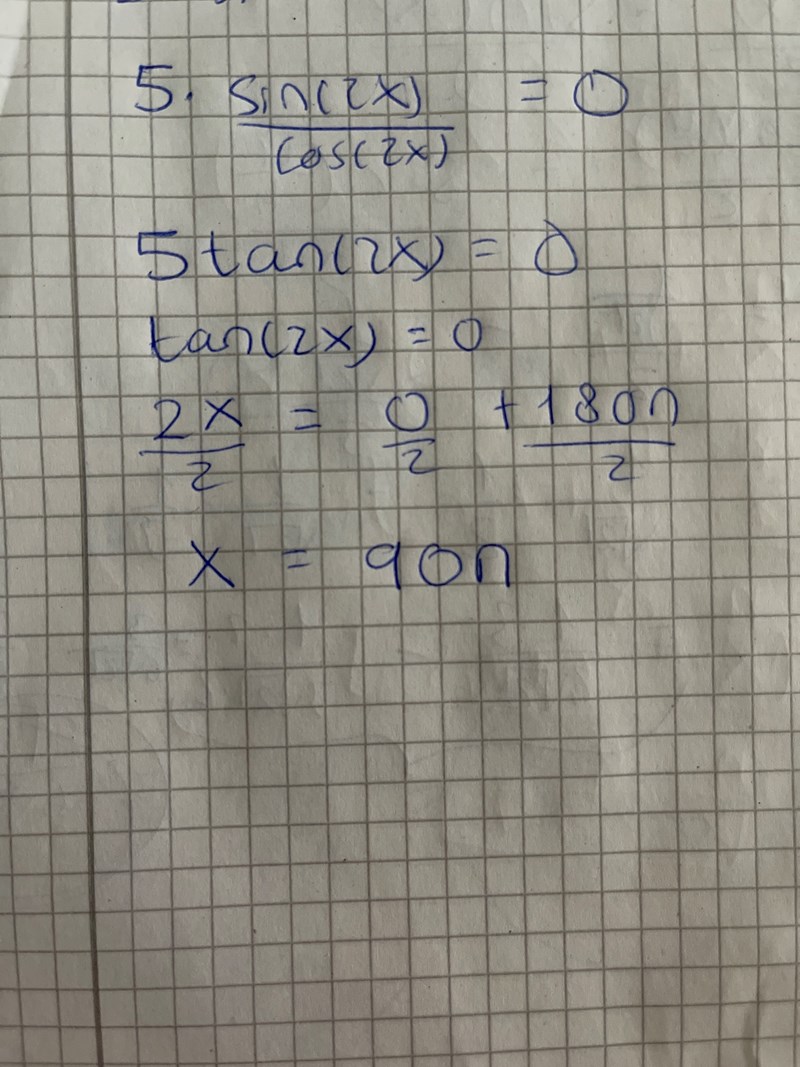 5. sin(2x) = 0
cos(2x)
5tan(2x) = 0
tan(2x) = 0
2x = 0 + 180n
2 2 2
x = 90n